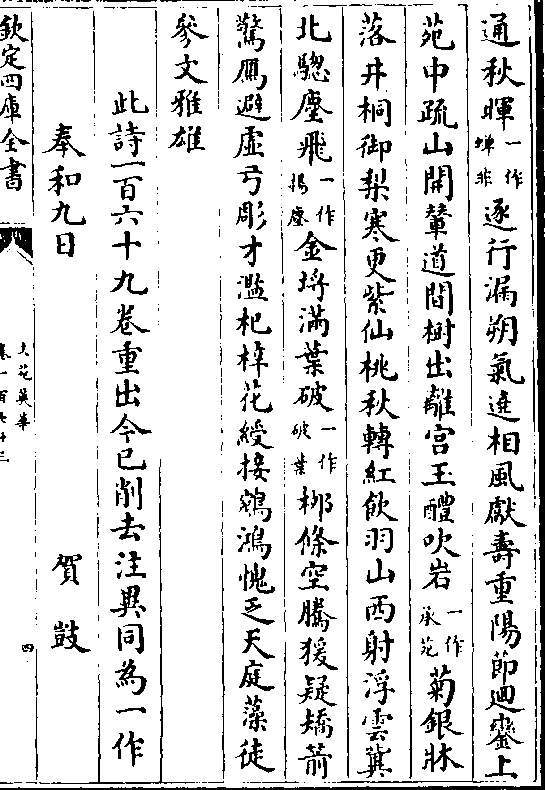 通秋暉一作蟬非逐行漏朔氣遶相風獻壽重陽節迴鑾上
苑中疏山開輦道間樹出離宮玉醴吹岩一作承苑菊銀牀
落井桐御梨寒更紫仙桃秋轉紅飲羽山西射浮雲冀
北驄塵飛一作揚塵金埒滿葉破一作破葉柳條空騰猨疑矯箭
驚鴈避虛弓彫才濫杞梓花綬接鵷鴻愧乏天庭藻徒
參文雅雄
此詩一百六十九卷重出今已削去注異同為一作
奉和九日　賀鼓
欽定四庫全書
文苑英華
卷一百七十三
四